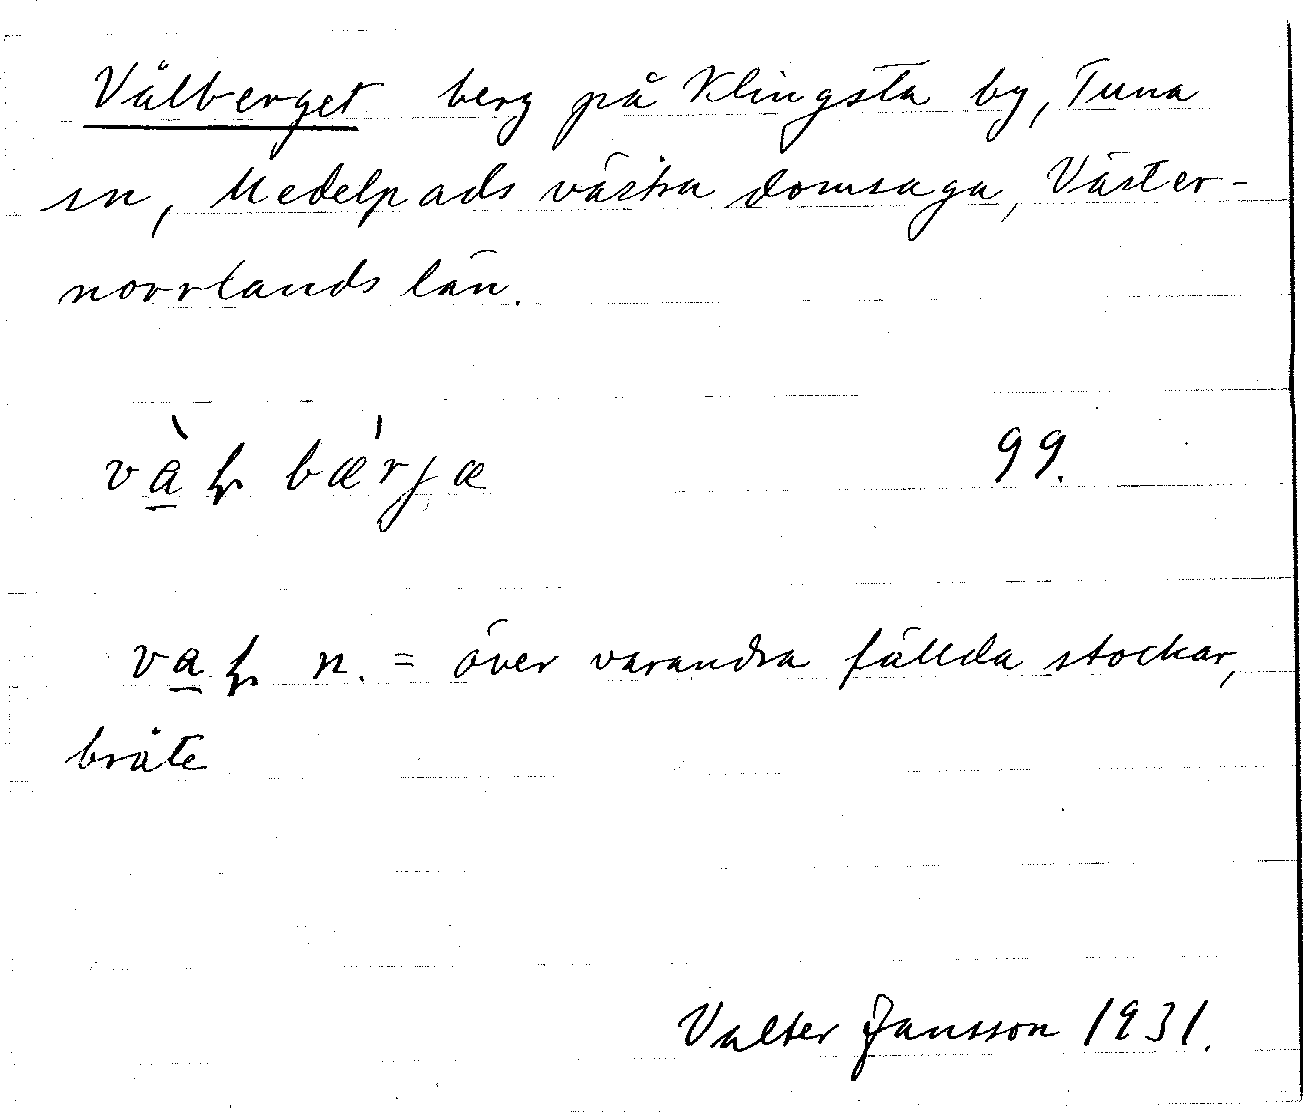 Vålberget berg på Klingsta by, Tuna
sn, Medelpads västra domsaga, Väster-
norrlands län.
bærjæ 99.
n. = över varandra fällda stockar,
bråte
Valter Jansson 1931.